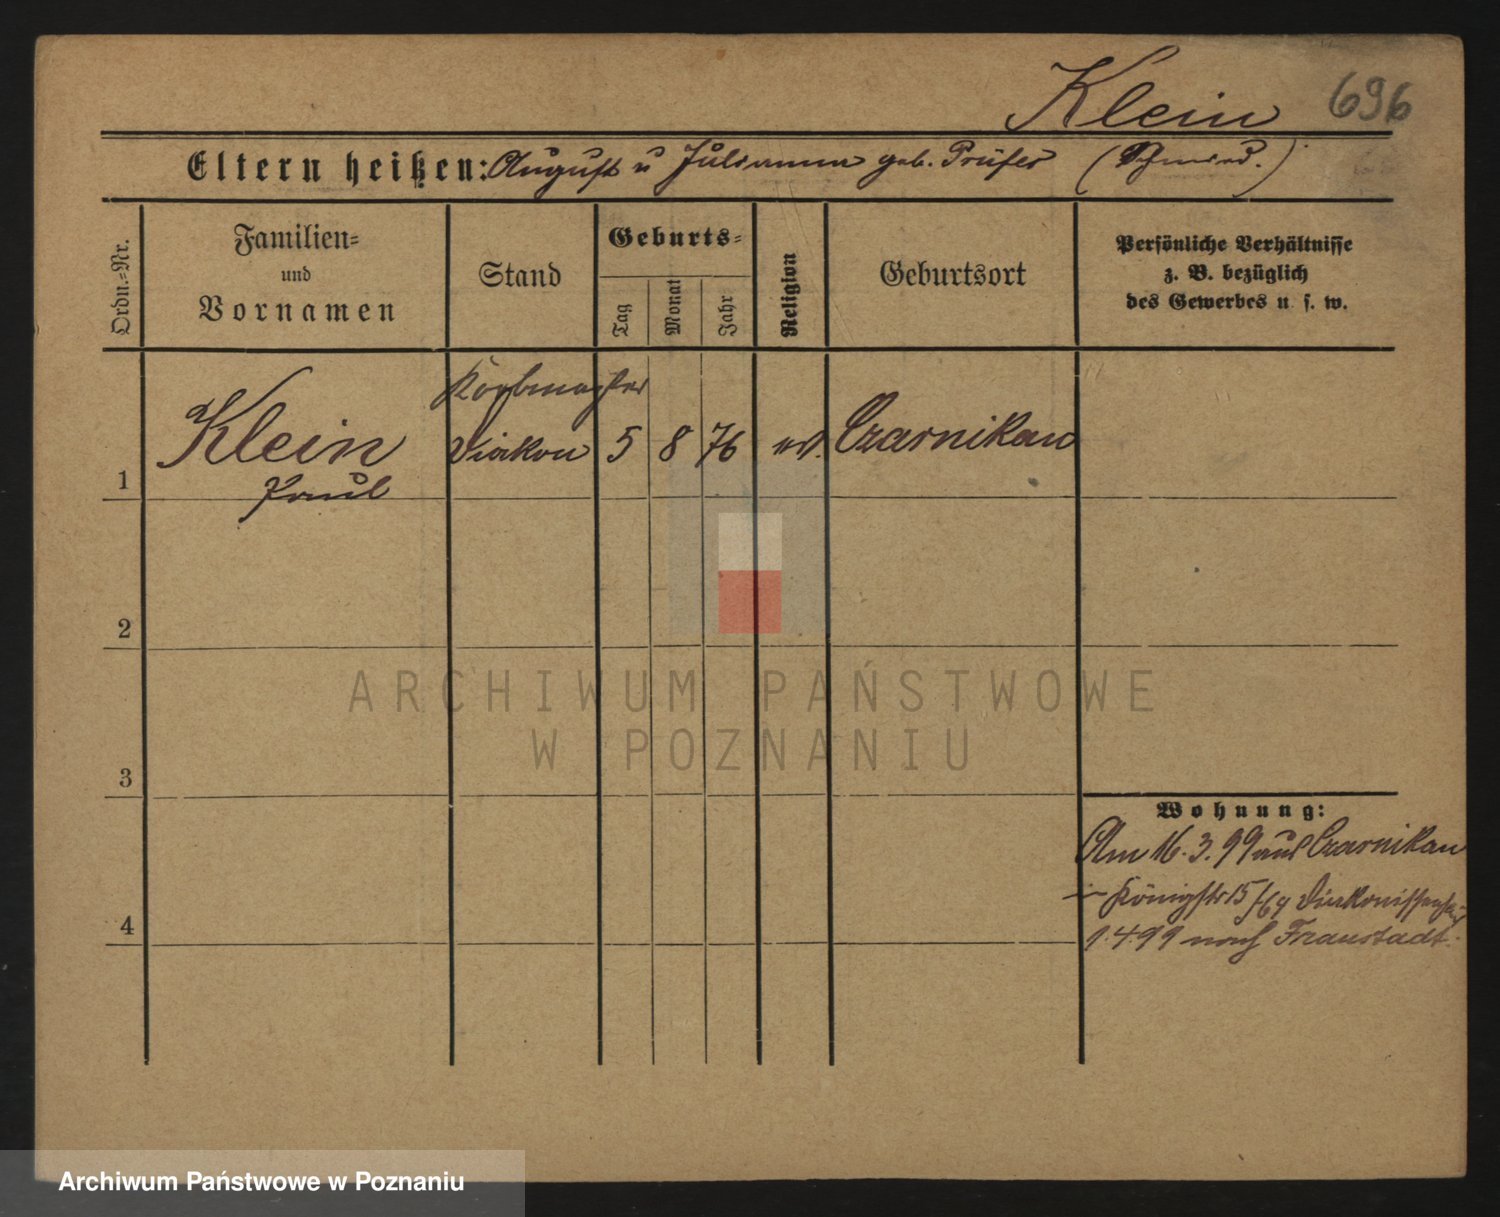 Klein 696
Eltern heißen: August u Julianna geb. Prüfer (Schmied.)
Ordn.-Nr.
Familien-
und
Vornamen
Stand
Geburts-
Tag
Monat
Jahr
Religion
Geburtsort
Persönliche Verhältnisse
z. B. bezüglich
des Gewerbes u. s. w.
Korbmacher
1 Klein Diakon 5 8 76 ev. Czarnikau
Paul
2
3
4
Wohnung:
Am 16.3.99 aus Czarnikau
Königstr 15
1.4.99 nach Fraustadt.
ARCHIWUM PAŃSTWOWE
W POZNANIU
Archiwum Państwowe w Poznaniu